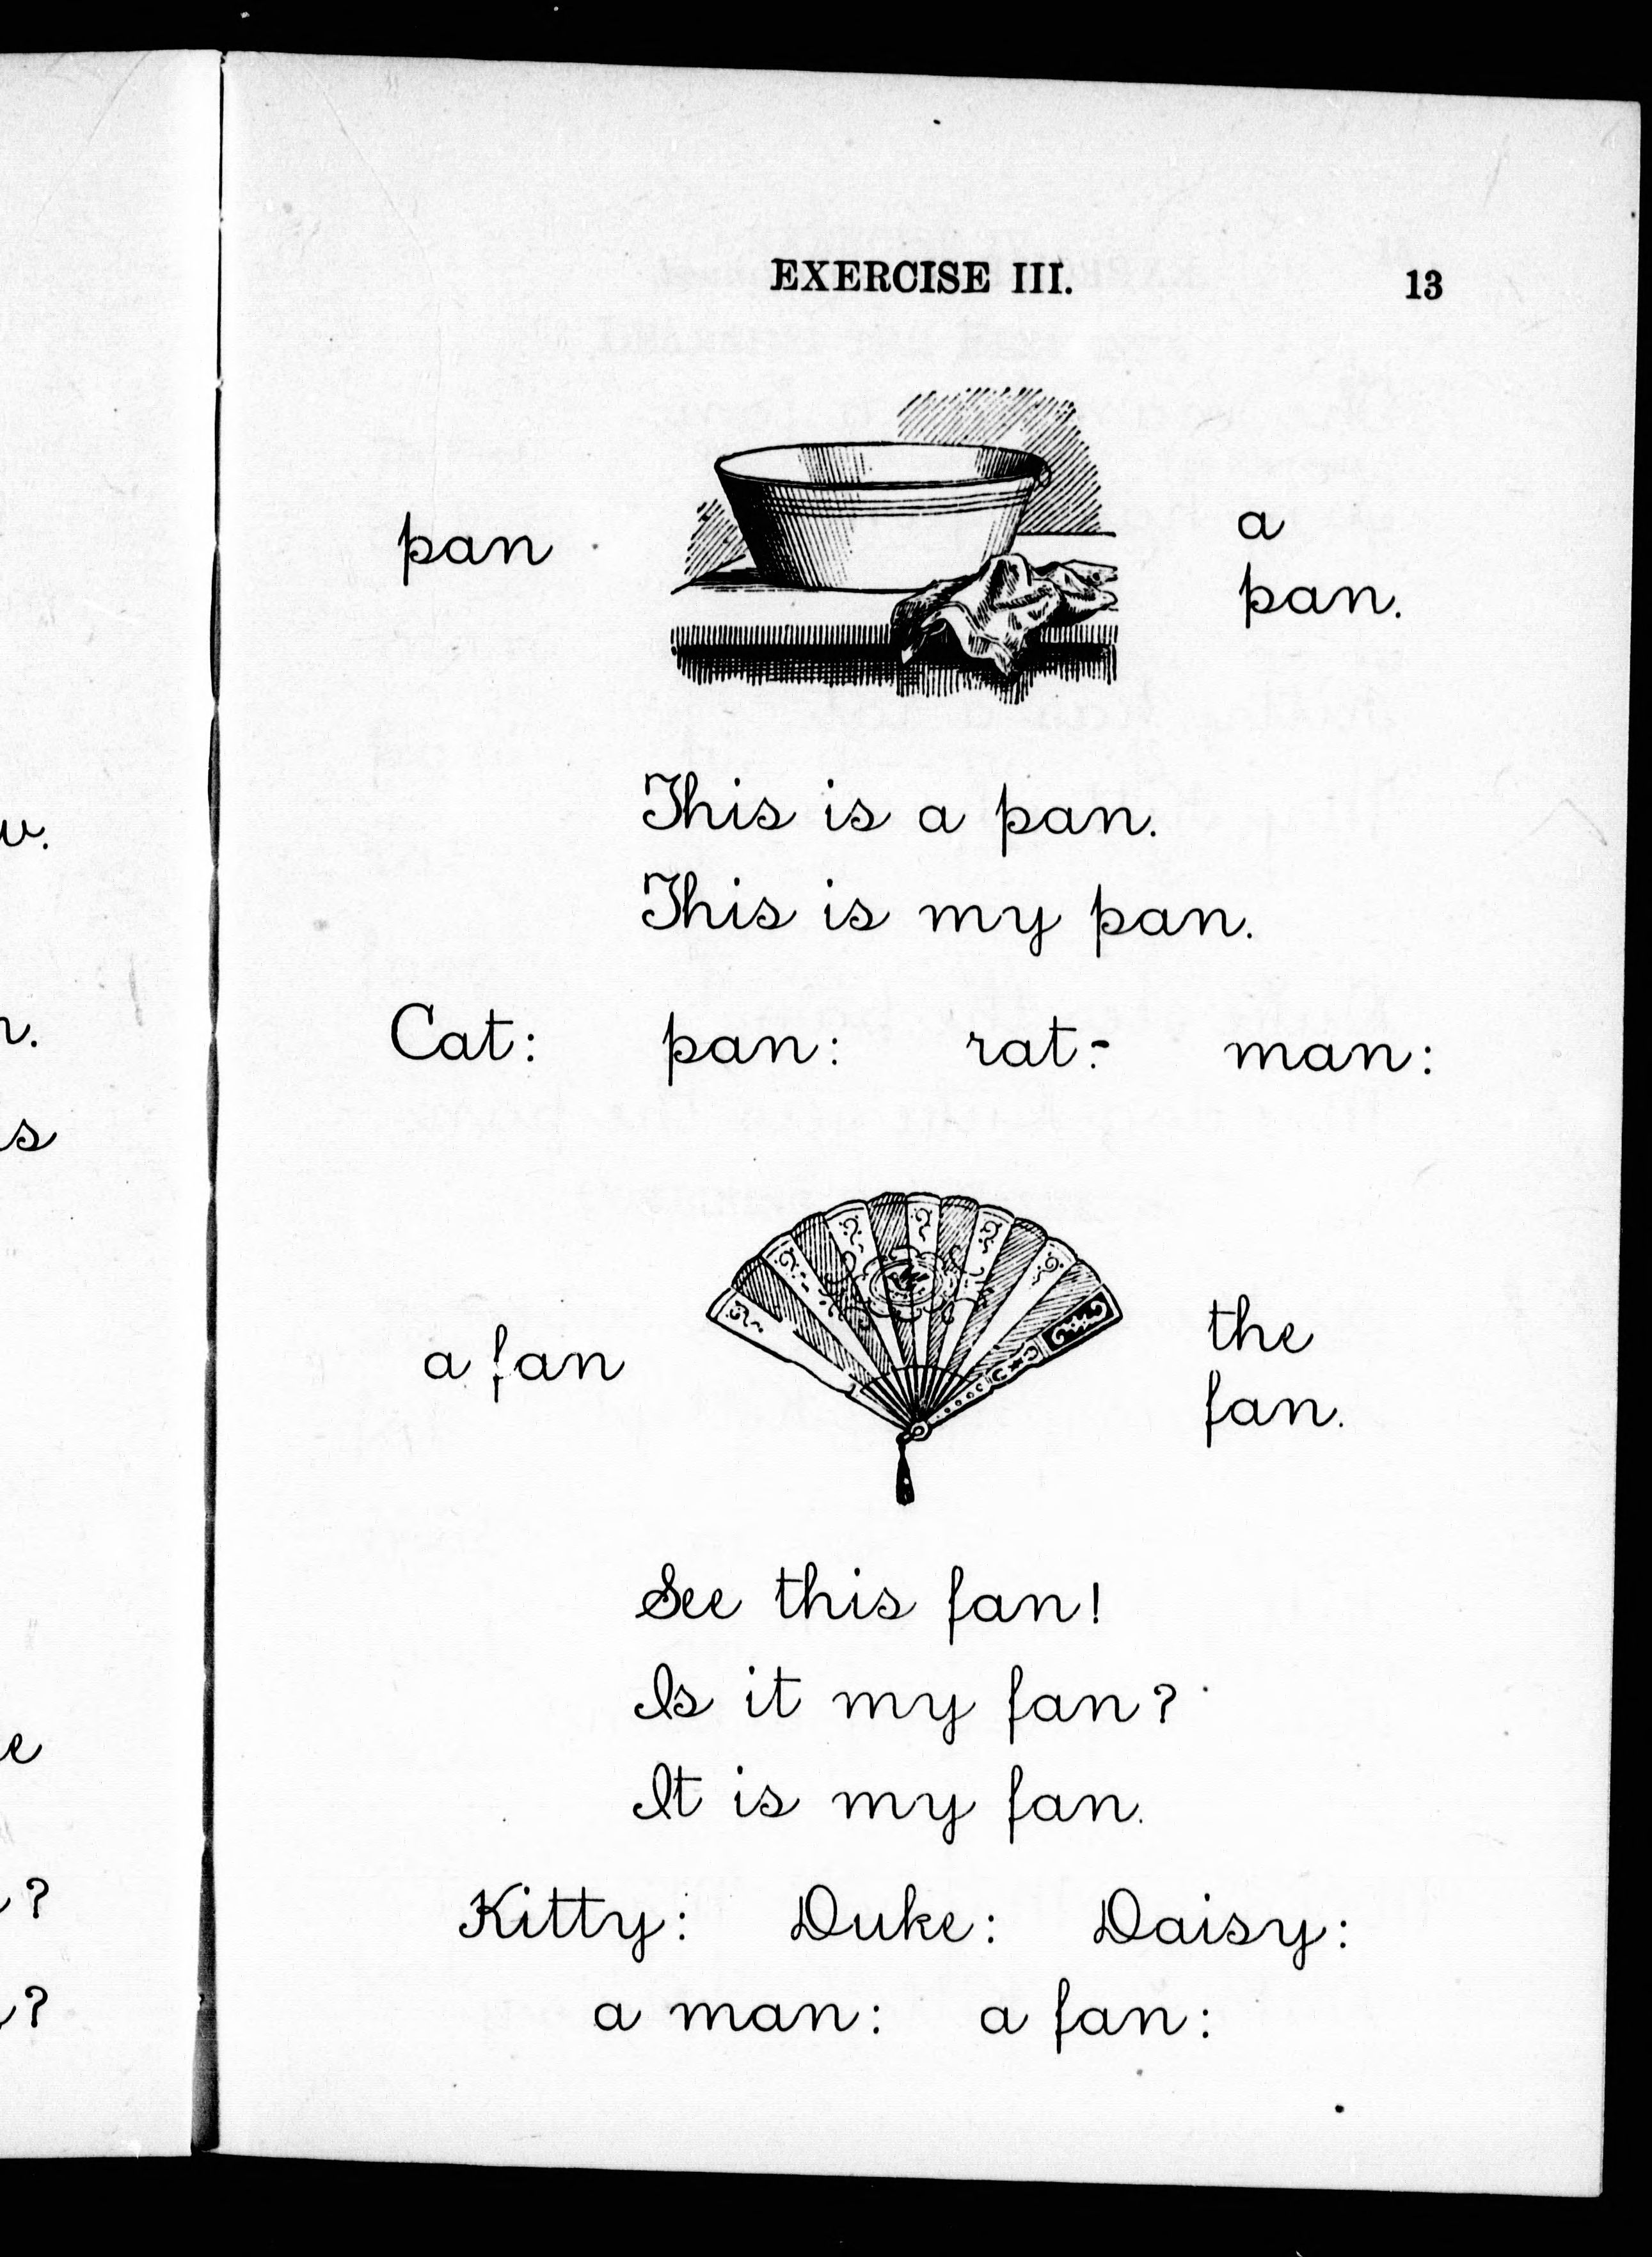 EXERCISE III. 13
pan
a
pan.
This is a pan.
This is my pan.
Cat: pan: rat: man:
a fan
the
fan.
See this fan!
Is it my fan?
It is my fan.
Kitty: Duke: Daisy:
a man: a fan: